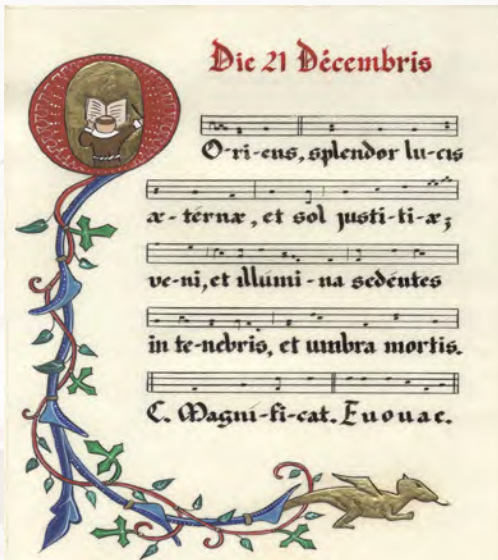 Die 21 Décembris
O-ri-ens, splendor lu-cis
æ-térnæ, et sol justi-ti-æ;
ve-ni, et illúmi-na sedéntes
in te-nebris, et umbra mortis.
C. Magní-fi-cat. Euouae.